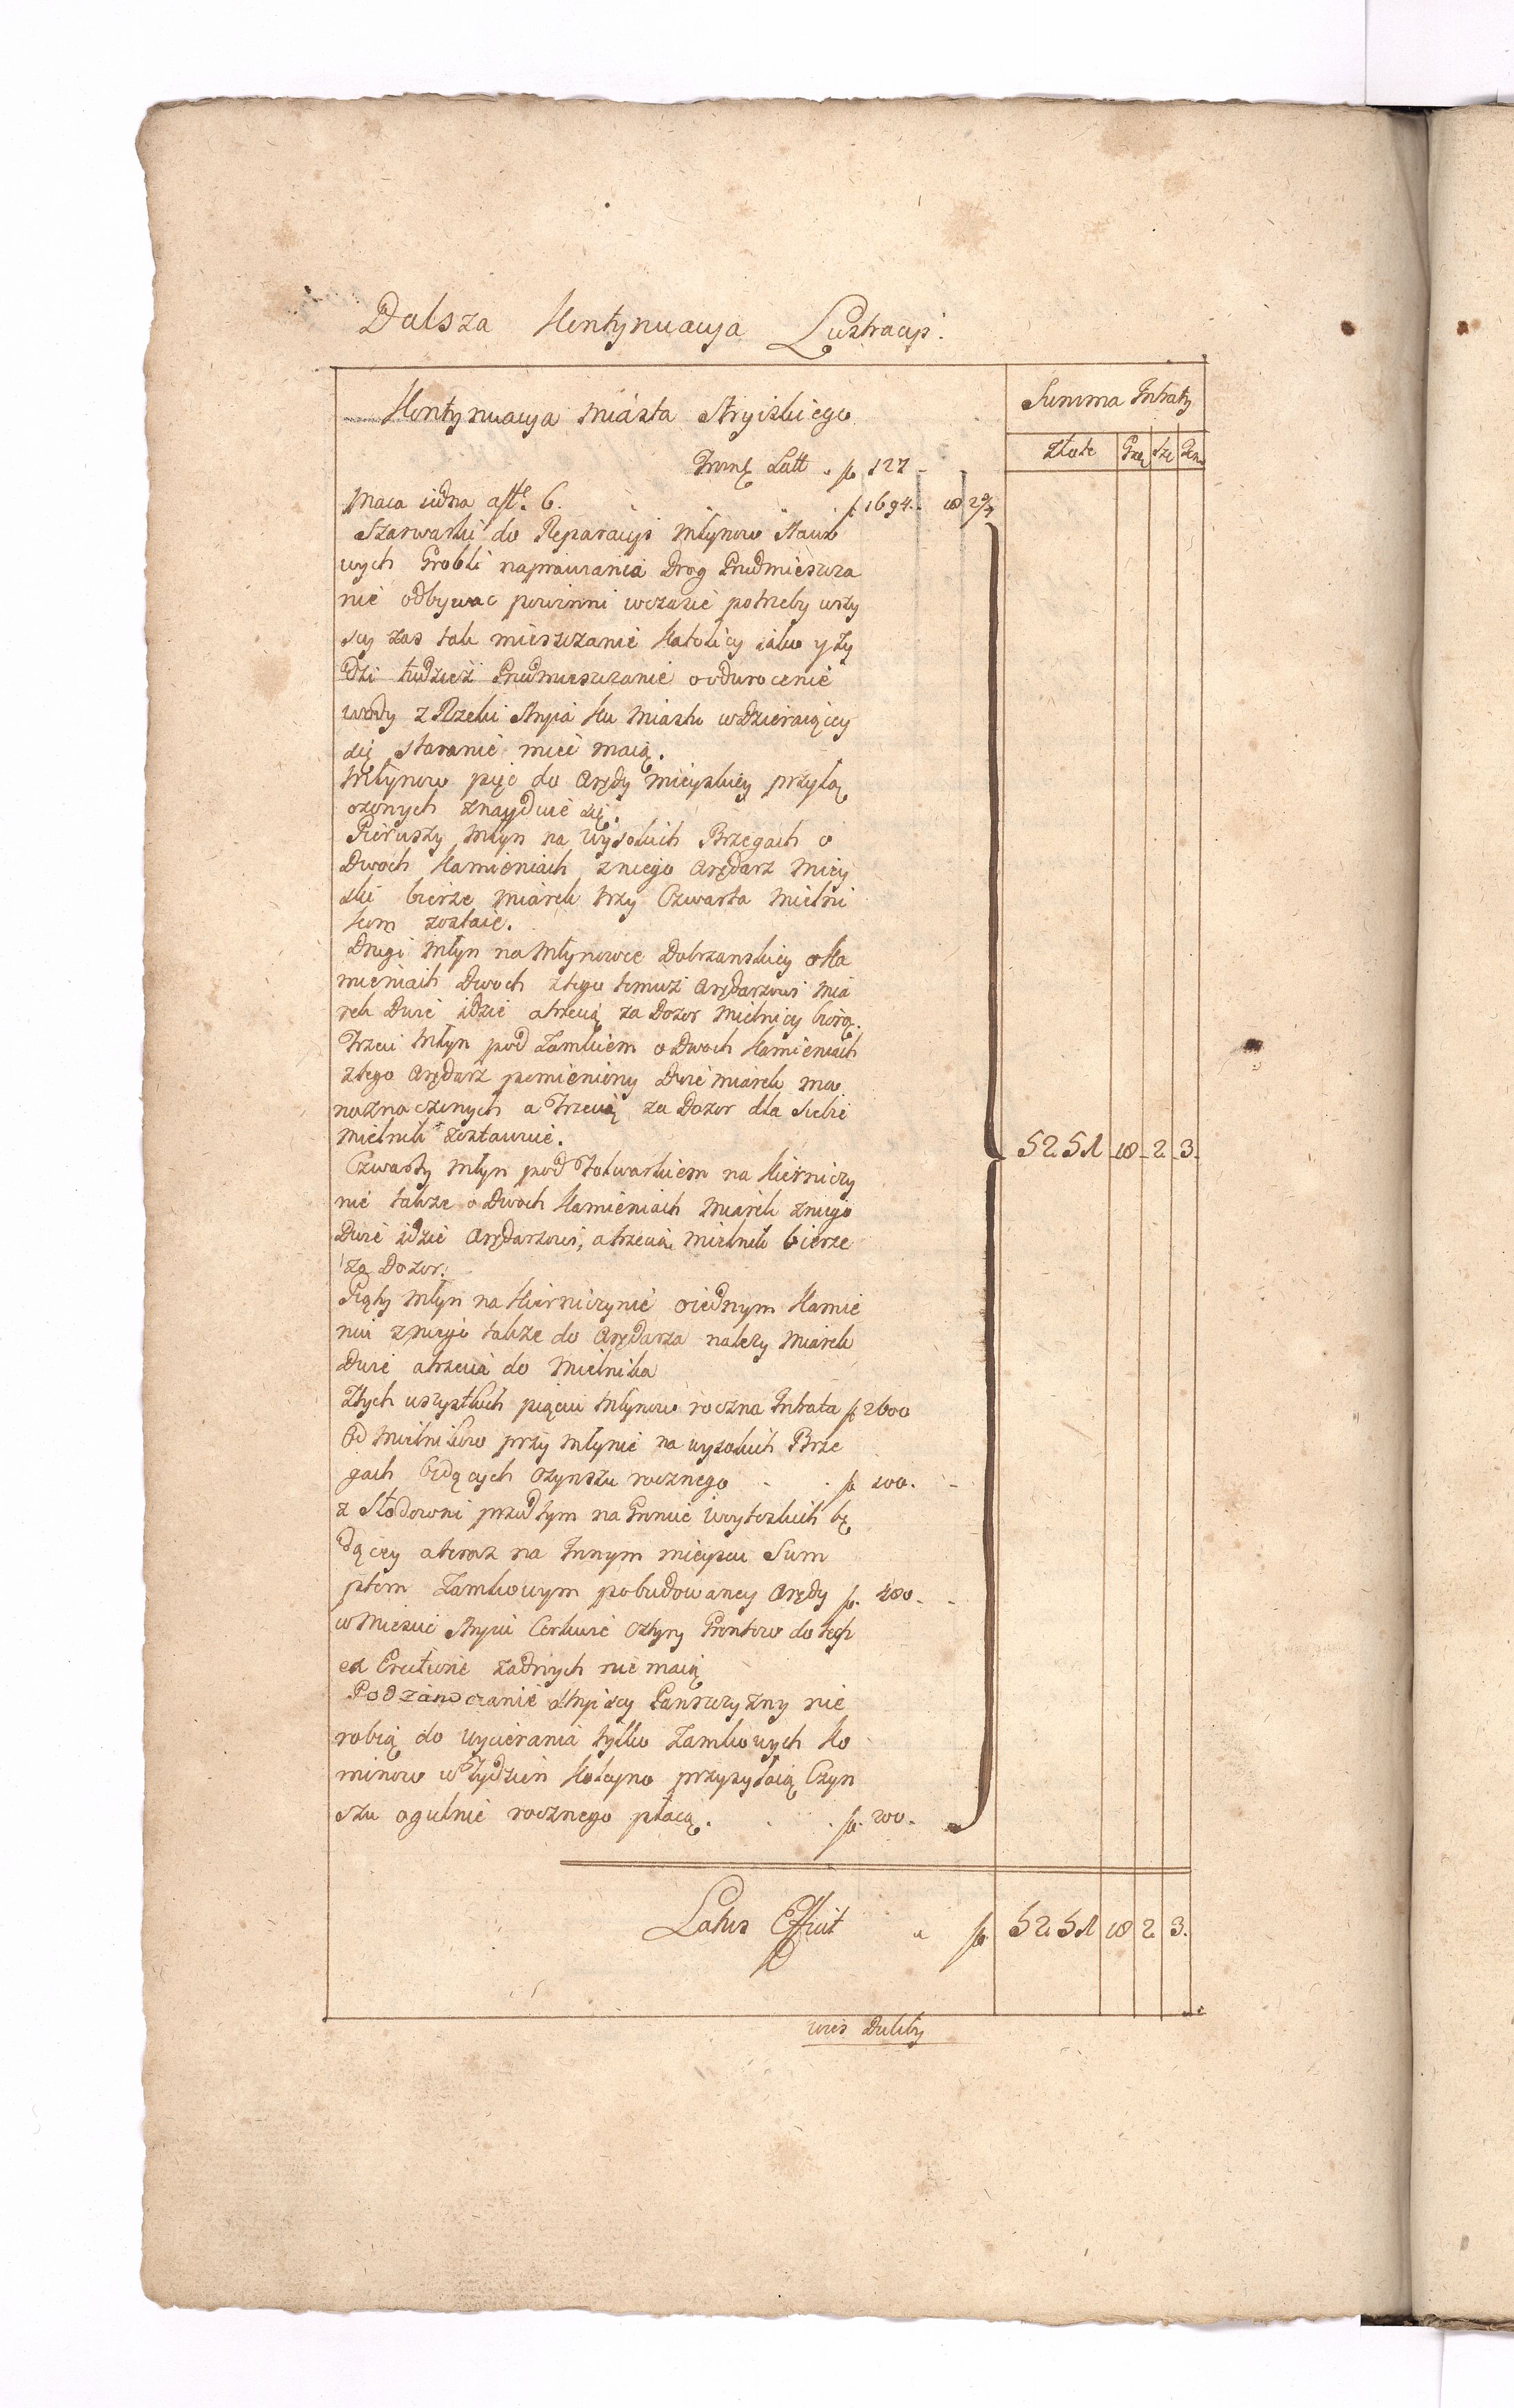 Dalsza Kontynuacya Lustracyi.
Kontynuacya Miasta Stryiskiego
Summa Intraty
Złote Gro Sze Den
Latt fl 127
Maca iedna a fl. 6. fl 1694. 18 2
Szarwarki do Reparacyi Młynow Stawo
wych Grobli naprawiania Drog Przedmieszcza
nie odbywac powinni wczasie potrzeby wszy
scy zas tak mieszczanie Katolicy iako y Ży
dzi tudzież Przedmieszczanie o odwrocenie
wody z Rzeki Stryia ku Miastu wdzieraiącey
się staranie mieć maią.
Młynow pięc do Arędy Mieyskiey przyłą
czonych znayduie się.
Pierwszy Młyn na Wysokich Brzegach o
Dwoch Kamieniach, zniego Arędarz Miey
ski bierze miarek trzy Czwarta Mielni
kom zostaie.
Drugi Młyn na Młynowce Dobrzanskiey o Ka
mieniach Dwoch ztego temuż Arędarzowi Mia
rek Dwie idzie a trzecią za Dozor Mielnicy biorą.
Trzeci Młyn pod Zamkiem o Dwoch Kamieniach
ztego Arędarz pomieniony Dwie miarek ma
naznaczonych a Trzecią za Dozor dla Siebie
Mielnik zostawuie.
5251 18 2 3.
Czwarty Młyn pod Folwarkiem na Kierniczy
nie także o Dwoch Kamieniach Miarek zniego
Dwie idzie Arędarzowi, a trzecią Mielnik bierze
za Dozor.
Piąty Młyn na Kierniczynie o iednym Kamie
niu zniego także do Arędarza należy Miarek
Dwie a trzecia do Mielnika
Ztych wszystkich pięciu Młynow roczna Intrata fl 2600
Od Mielnikow przy Młynie na wysokich Brze
gach będących Czynszu rocznego fl 100.
z Słodowni przedtym na Gruncie Woytoskich bę
dącey a teraz na Innym mieyscu Sum
ptem Zamkowym pobudowaney Arędy fl. 480.
w Miescie Stryiu Cerkwie Cztyry Gruntow do tych
ex Erectione żadnych nie maią
Podzamczanie Stryiscy Panszczyzny nie
robią do wycierania tylko Zamkowych Ko
minow w Tydzień Koleyno przysyłaią Czyn
szu ogulnie rocznego płacą. fl. 200.
Latus Efficit fl. 5251 18 2 3.
wies Duliby